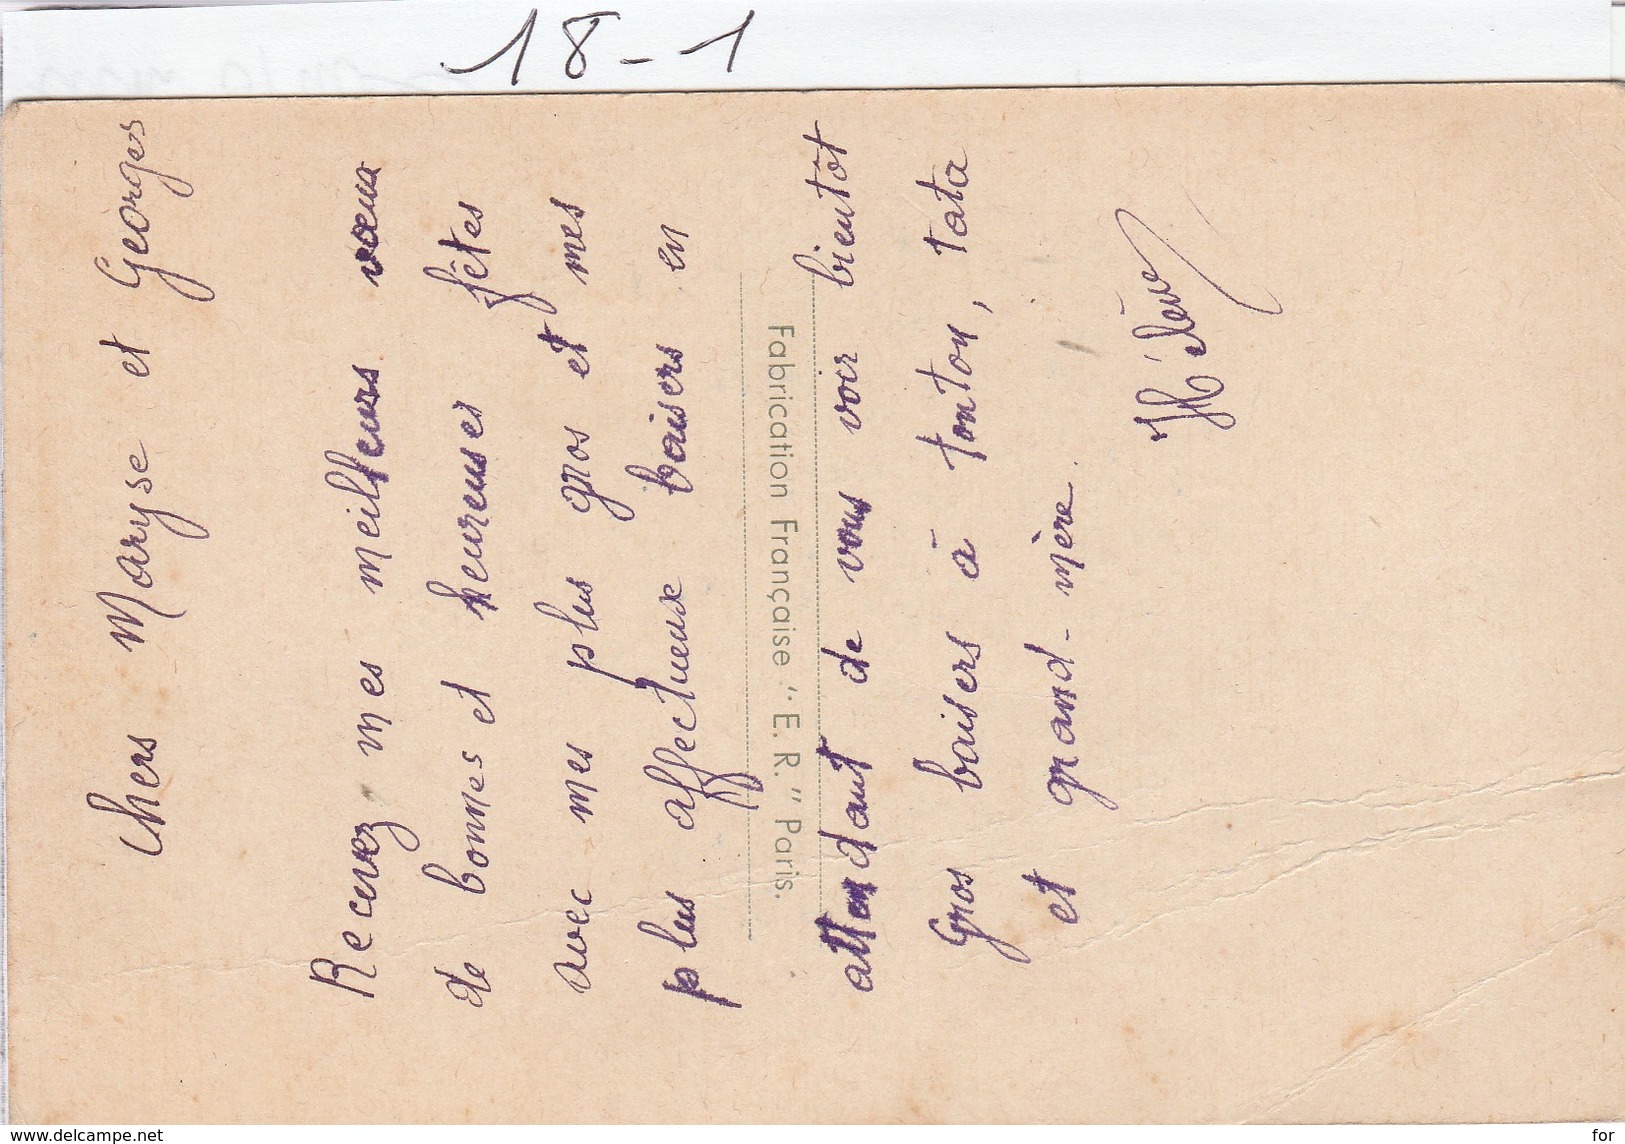 18-1
Chers Maryse et Georges
Recevez mes meilleurs vœux
de bonnes et heureuses fêtes
avec mes plus gros et mes
plus affectueux baisers en
Fabrication Française "E. R." Paris.
attendant de vous voir bientôt
Gros baisers à tonton, tata
et grand-mère.
www.delcampe.net
for